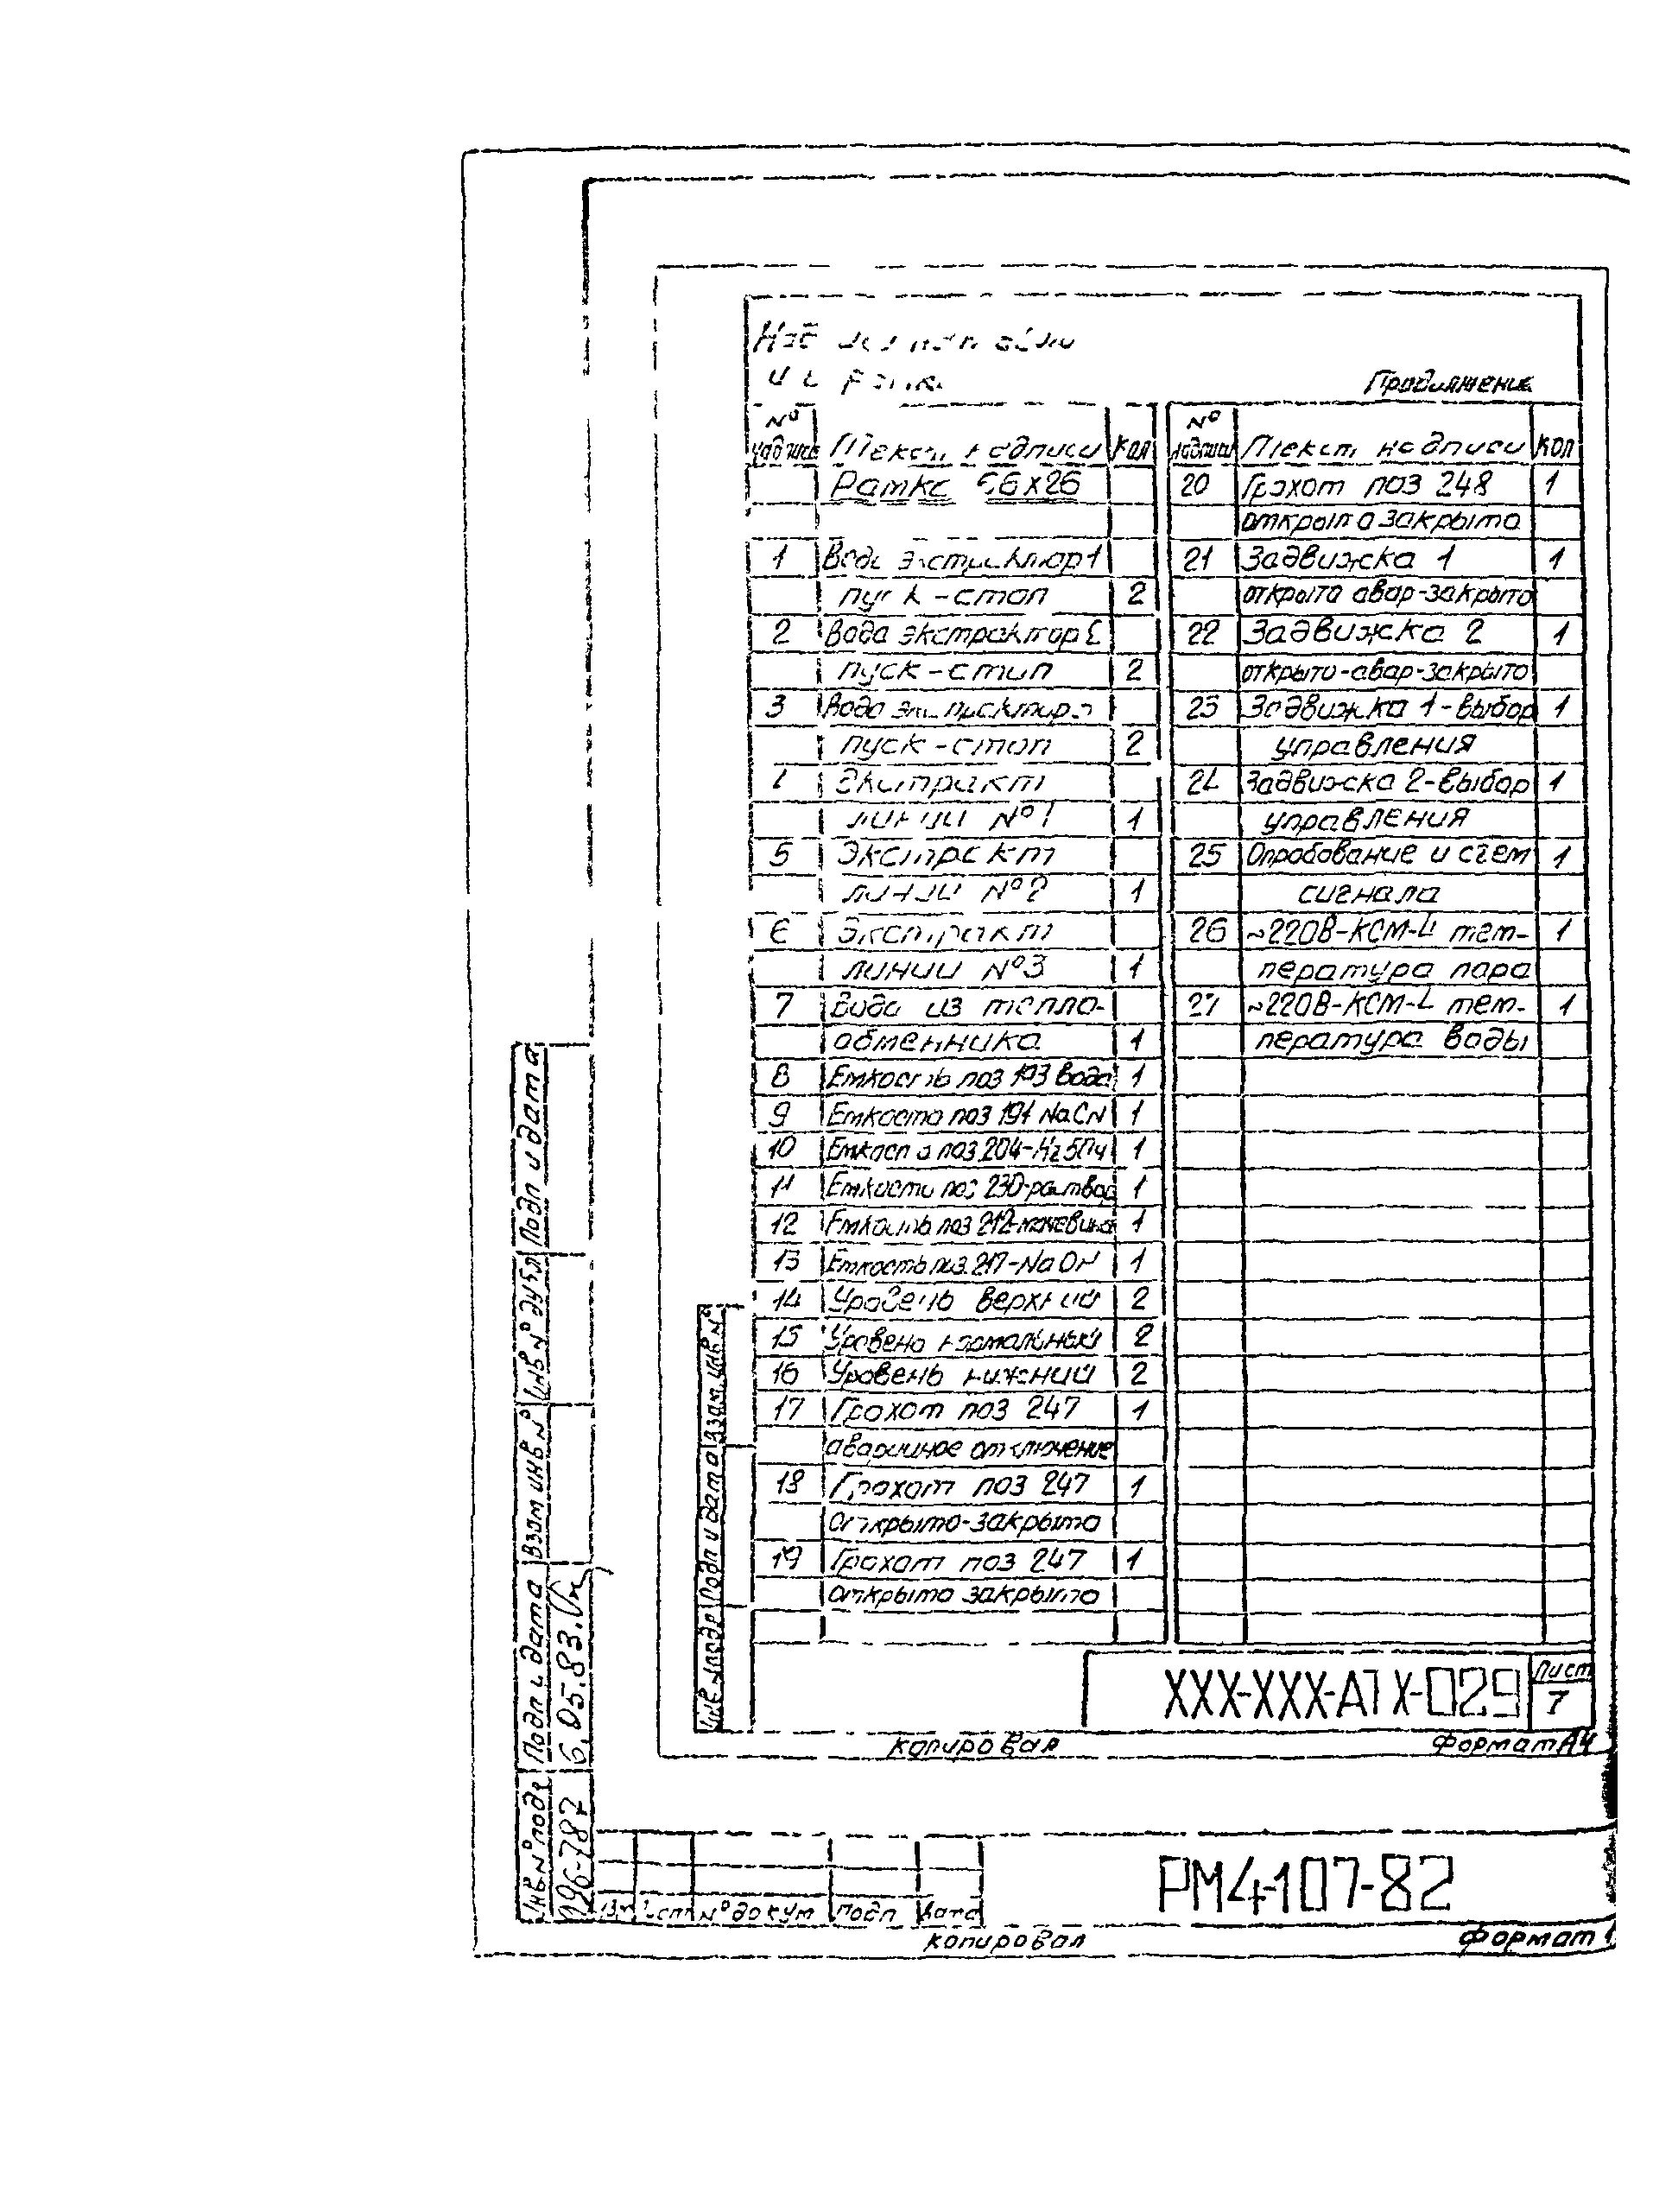 Продолжение
№ надписи Текст надписи Кол
Рамка 66х26
1 Вода экстрактор 1
пуск-стоп 2
2 Вода экстрактор 2
пуск-стоп 2
3 Вода экстрактор 3
пуск-стоп 2
4 Экстракт
линии №1 1
5 Экстракт
линии №2 1
6 Экстракт
линии №3 1
7 Вода из тепло-
обменника 1
8 Емкость поз 193 вода 1
9 Емкость поз 194 NaCN 1
10 Емкость поз 204-H2SO4 1
11 Емкость поз 230-раствор 1
12 Емкость поз 212-мочевина 1
13 Емкость поз. 217-NaOH 1
14 Уровень верхний 2
15 Уровень нормальный 2
16 Уровень нижний 2
17 Грохот поз 247 1
аварийное отключение
18 Грохот поз 247 1
Открыто-закрыто
19 Грохот поз 247 1
открыто закрыто
№ надписи Текст надписи Кол
20 Грохот поз 248 1
открыто закрыто
21 Задвижка 1 1
открыто авар-закрыто
22 Задвижка 2 1
открыто-авар-закрыто
23 Задвижка 1-выбор 1
управления
24 Задвижка 2-выбор 1
управления
25 Опробование и съем 1
сигнала
26 ~220В-КСМ-4 тем- 1
пература пара
27 ~220В-КСМ-4 тем- 1
пература воды
Инв № подл Подп и дата Взам. инв №
ХХХ-ХХХ-АТХ-029
Лист
7
Копировал Формат А4
Инв. № подл Подп и дата Взам инв № Инв № дубл Подп и дата
196-787 6.05.83.
Изм Лист № докум Подп Дата
РМ4-107-82
Копировал Формат